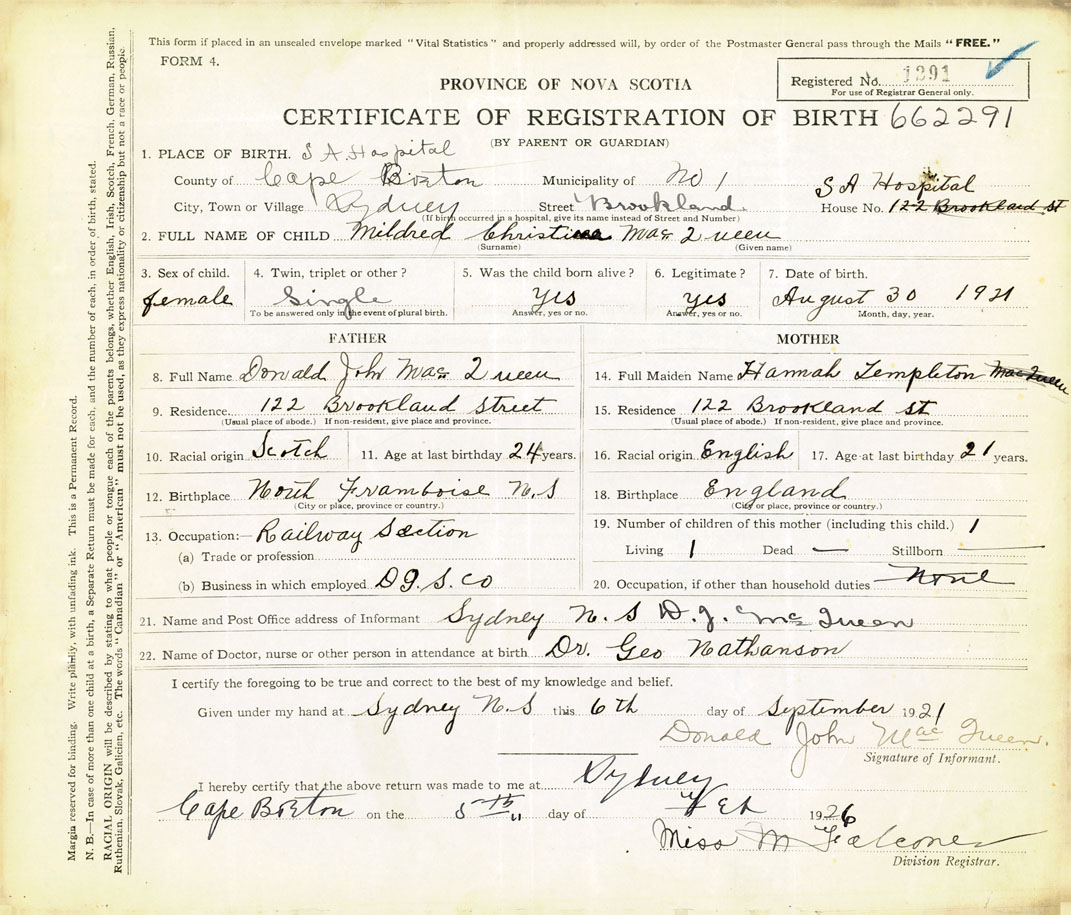 This form if placed in an unsealed envelope marked "Vital Statistics" and properly addressed will, by order of the Postmaster General pass through the Mails "FREE."
FORM 4.
Registered No. 1391
For use of Registrar General only.
PROVINCE OF NOVA SCOTIA
CERTIFICATE OF REGISTRATION OF BIRTH 662291
(BY PARENT OR GUARDIAN)
1. PLACE OF BIRTH. S A. Hospital
County of Cape Breton Municipality of No 1 S A Hospital
City, Town or Village Sydney Street Brookland House No. 122 Brookland St
(If birth occurred in a hospital, give its name instead of Street and Number)
2. FULL NAME OF CHILD Mildred Christina Mac Queen
(Surname) (Given name)
3. Sex of child. 4. Twin, triplet or other? 5. Was the child born alive? 6. Legitimate? 7. Date of birth.
female Single Yes Yes August 30 1921
To be answered only in the event of plural birth. Answer, yes or no. Answer, yes or no. Month, day, year.
FATHER MOTHER
8. Full Name Donald John Mac Queen 14. Full Maiden Name Hannah Templeton MacQueen
9. Residence. 122 Brookland Street 15. Residence 122 Brookland St
(Usual place of abode.) If non-resident, give place and province. (Usual place of abode.) If non-resident, give place and province.
10. Racial origin Scotch 11. Age at last birthday 24 years. 16. Racial origin English 17. Age at last birthday 21 years.
12. Birthplace North Framboise N.S 18. Birthplace England
(City or place, province or country.) (City or place, province or country.)
13. Occupation:— Railway Section 19. Number of children of this mother (including this child.) 1
(a) Trade or profession Living 1 Dead — Stillborn —
(b) Business in which employed D I. S. Co 20. Occupation, if other than household duties None
21. Name and Post Office address of Informant Sydney N. S D. J. Mc Queen
22. Name of Doctor, nurse or other person in attendance at birth Dr. Geo Nathanson
I certify the foregoing to be true and correct to the best of my knowledge and belief.
Given under my hand at Sydney N. S this 6th day of September 1921
Donald John Mac Queen.
Signature of Informant.
I hereby certify that the above return was made to me at Sydney
Cape Breton on the 5th day of Feb 1926
Miss M Falconer
Division Registrar.
Margin reserved for binding. Write plainly, with unfading ink. This is a Permanent Record.
N. B.—In case of more than one child at a birth, a Separate Return must be made for each, and the number of each, in order of birth, stated.
RACIAL ORIGIN will be described by stating to what people or tongue each of the parents belongs, whether English, Irish, Scotch, French, German, Russian,
Ruthenian, Slovak, Galician, etc. The words "Canadian" or "American" must not be used, as they express nationality or citizenship but not a race or people.